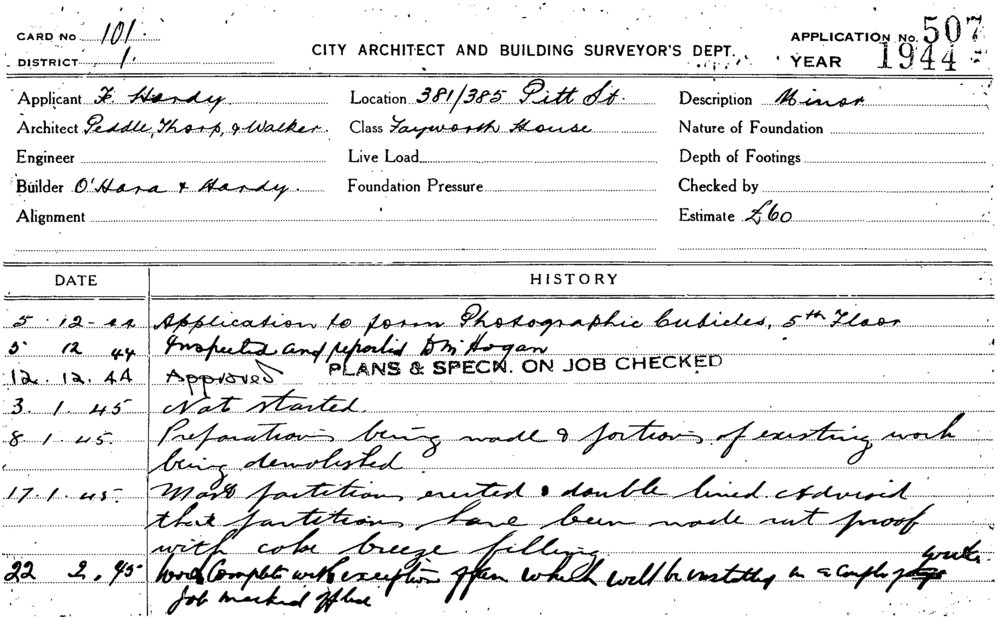 CARD No 101.
DISTRICT 1.
CITY ARCHITECT AND BUILDING SURVEYOR'S DEPT.
APPLICATION No. 507
YEAR 1944
Applicant F. Hardy
Location 381/385 Pitt St.
Description Minor
Architect Peddle, Thorp, & Walker.
Class Fayworth House
Nature of Foundation
Engineer
Live Load
Depth of Footings
Builder O'Hara & Hardy.
Foundation Pressure
Checked by
Alignment
Estimate £60
DATE HISTORY
5 . 12 - 44 Application to form Photographic Cubicles, 5th Floor
5 12 44 Inspected and reported Hogan
PLANS & SPECN. ON JOB CHECKED
12. 12. 44 Approved
3. 1. 45 Not started.
8 1. 45. Preparations being made & portions of existing work
being demolished.
17. 1. 45. Most partitions erected & double lined. Advised
that partitions have been made rat proof
with coke breeze filling.
22 2. 45 Work Complete with exception of fan which will be installed in a couple of weeks
Job marked off